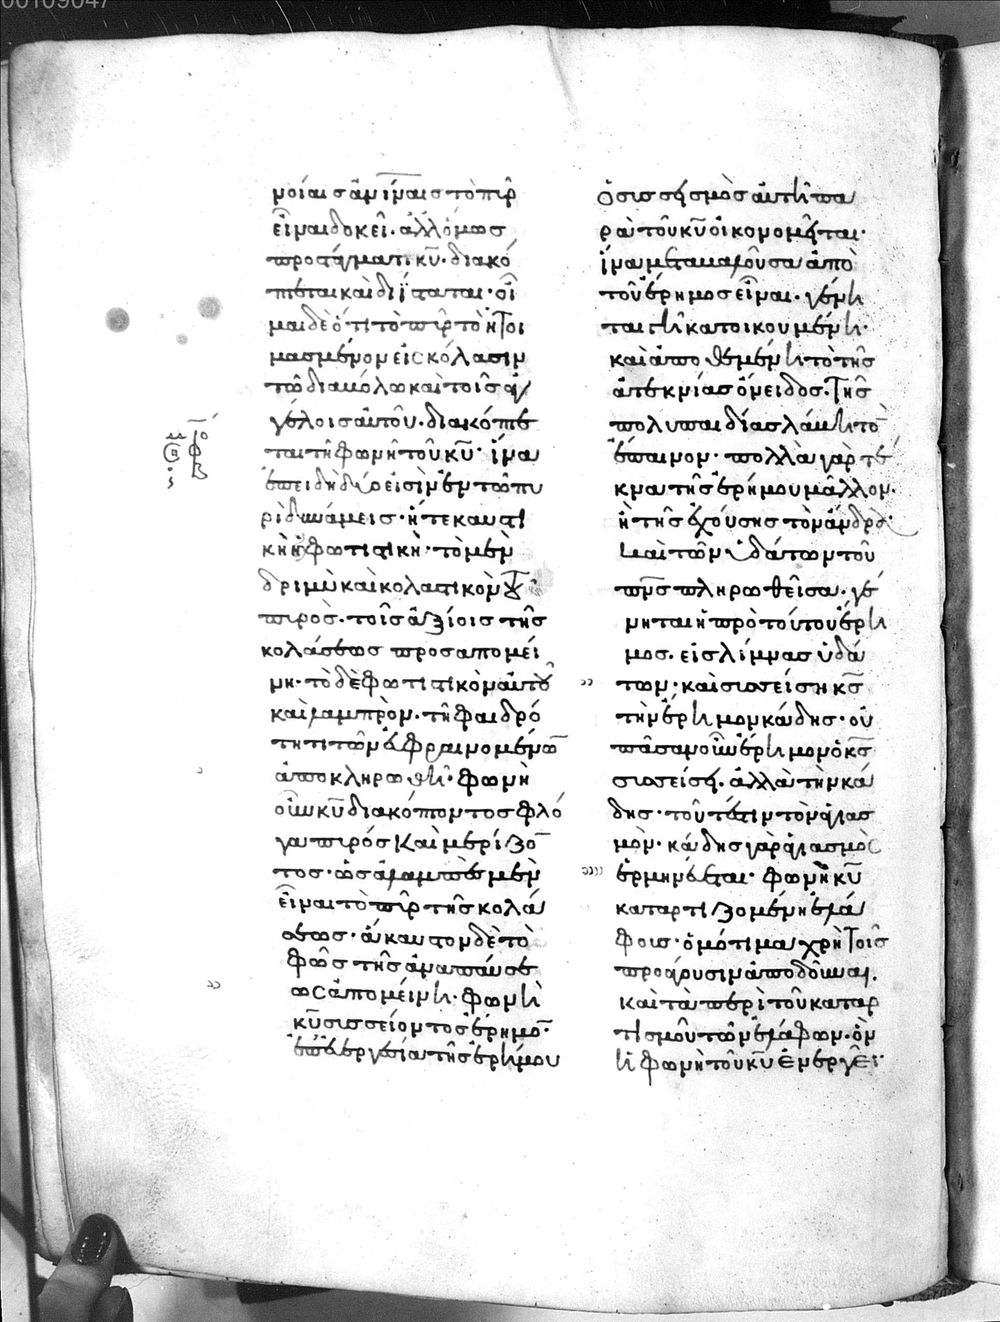 νοίαις ἀνίναις τὸ πῦρ
εἶναι δοκεῖ. ἀλλ᾽ ὅμως
προστάγματι κυ. διακό
πτεται καὶ διΐσταται. οἶ
μαι δὲ ὅτι τὸ πῦρ τὸ ἡτοι
μασμένον εἰς κόλασιν
τῶ διαβόλω καὶ τοῖς ἀγ
γέλοις αὐτοῦ. διακόπτε
ται τῆ φωνῆ τοῦ κυ. ἵνα
ἐπειδὴ δύο εἰσὶν ἐν τῶ πυ
ρὶ δυνάμεις. ἥ τε καυστι
κὴ ἡ φωτιστικὴ. τὸ μὲν
δριμὺ καὶ κολαστικὸν τοῦ
πυρὸς. τοῖς ἀξίοις τῆς
κολάσεως προσαπομεί
νη. τὸ δὲ φωτιστικὸν αὐτοῦ
καὶ λαμπρὸν. τῆ φαιδρό
τητι τῶν εὐφραινομένων
ἀποκληρωθῆ. φωνὴ
οὖν κυ διακόπτοντος φλό
γα πυρός καὶ μερίζον
τος. ὡς ἀλαμπὲς μὲν
εἶναι τὸ πῦρ τῆς κολά
σεως. ἄκαυστον δὲ τὸ
φῶς τῆς ἀναπαύσε
ως ἀπομείνη. φωνὴ
κυ συσσείοντος ἔρημον.
ἐπ᾽ εὐεργεσία τῆς ἐρήμου
ὁ συσσεισμὸς αὐτῆ πα
ρὰ τοῦ κυ οἰκονομεῖται.
ἵνα μεταβαλοῦσα ἀπὸ
τοῦ ἔρημος εἶναι. γένη
ται γῆ κατοικουμένη.
καὶ ἀποθεμένη τὸ τῆς
ἀτεκνίας ὄνειδος. τῆς
πολυπαιδίας λάβη τὸν
ἔπαινον. πολλὰ γὰρ τέ
κνα τῆς ἐρήμου μᾶλλον.
ἢ τῆς ἐχούσης τὸν ἄνδρα.
καὶ τῶν ὑδάτων τοῦ
πνς πληρωθεῖσα. γέ
νηται ἡ πρὸ τούτου ἔρη
μος. εἰς λίμνας ὑδά
των. καὶ συσσείση κς
τὴν ἔρημον κάδης. οὐ
πᾶσαν οὖν ἔρημον ὁ κς
συσσείσει. ἀλλὰ τὴν κά
δης. τουτέστιν τὸν ἁγιας
μὸν. κάδης γὰρ ἁγιασμὸς
ἑρμηνεύεται. φωνὴ κυ
καταρτιζομένη ἐλά
φους. ὁμότιμα χρὴ τοῖς
προάγουσιν ἀποδοῦναι.
καὶ τὰ περὶ τοῦ καταρ
τισμοῦ τῶν ἐλάφων. ὃν
ἡ φωνὴ τοῦ κυ ἐνεργεῖ.